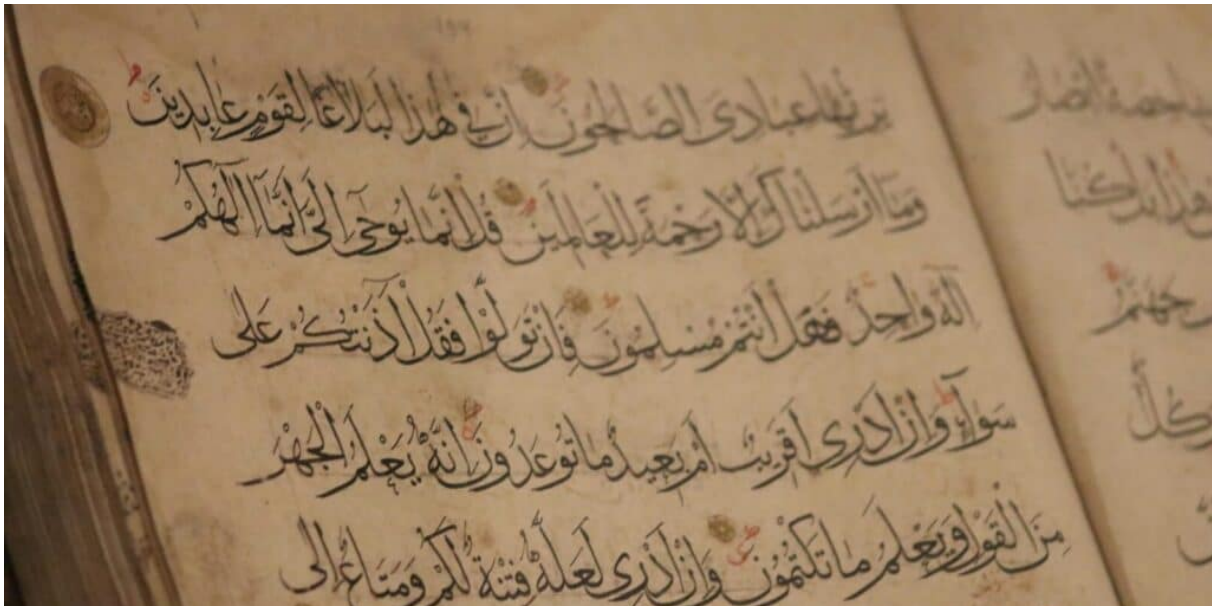 يرثها عبادى الصالحون ان فى هذا لبلاغا لقوم عابدين
وما ارسلناك الا رحمة للعالمين قل انما يوحى الى انما الهكم
اله واحد فهل انتم مسلمون فان تولوا فقل اذنتكم على
سواء وان ادرى اقريب ام بعيد ما توعدون انه يعلم الجهر
من القول ويعلم ما تكتمون وان ادرى لعله فتنة لكم ومتاع الى
جهنم
كل